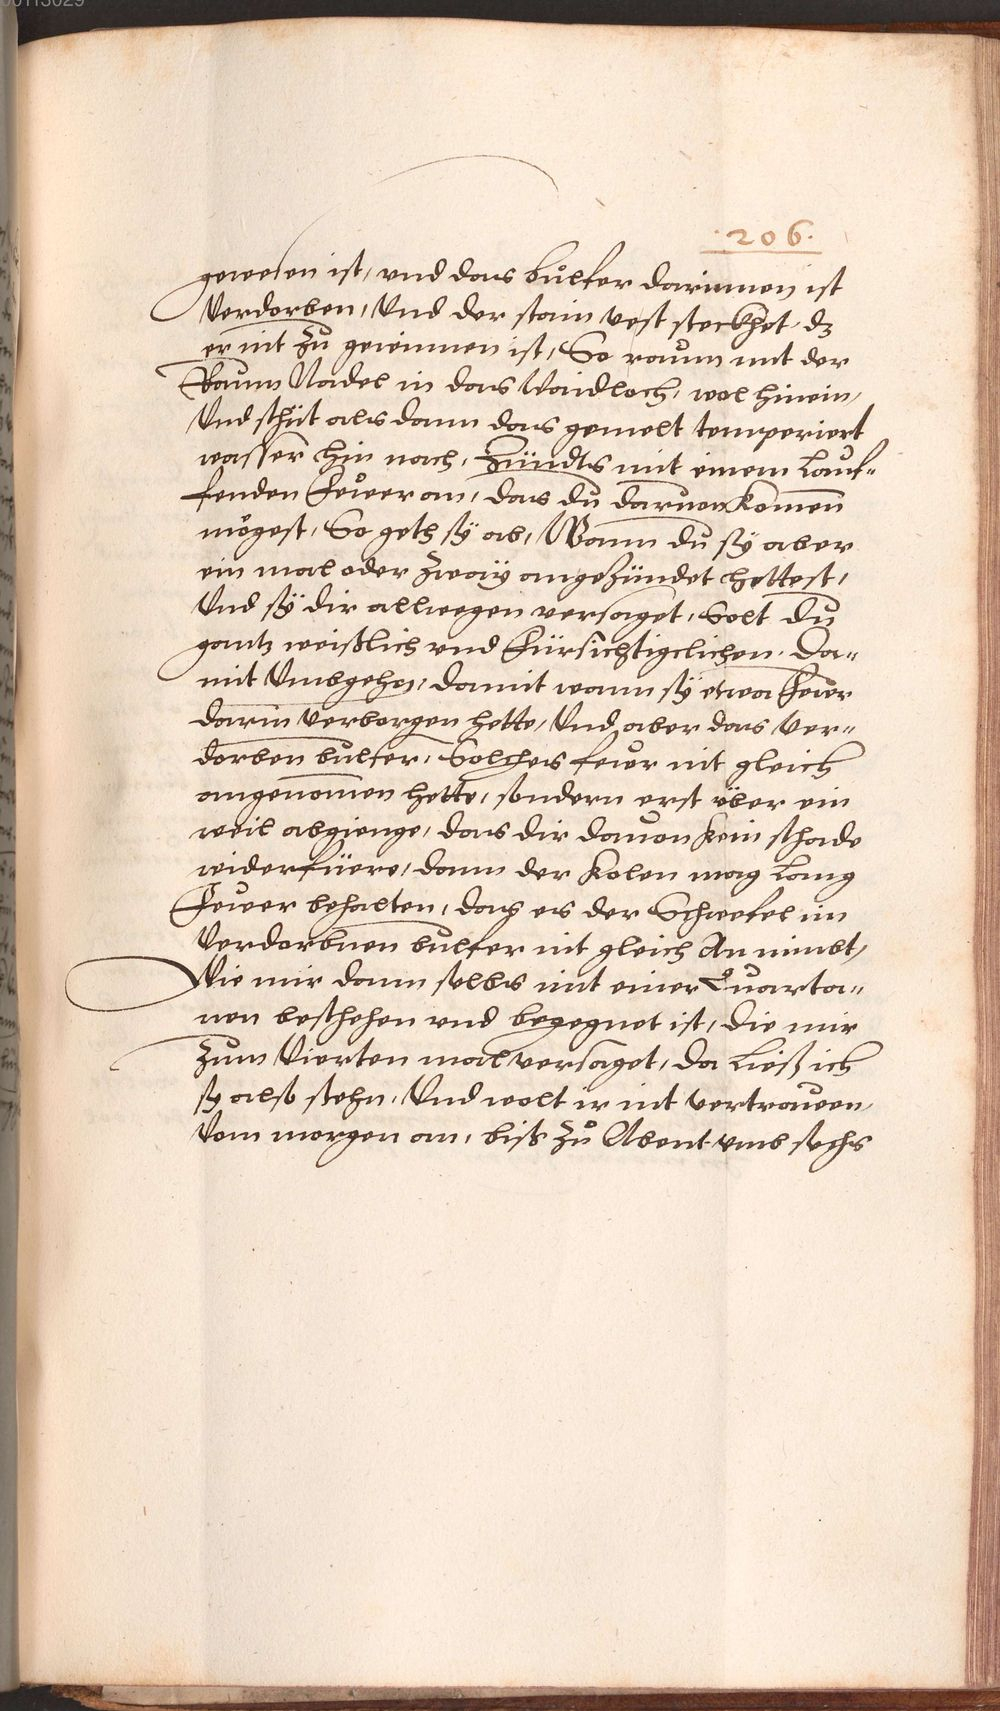 00113029
.206.
gewesen ist, vnd das bulfer darinnen ist
Verdorben, Vnd der stain vest steckhet, dz
er nit zu gewinnen ist, So raum mit der
Raum Nadel in das Waidloch, wol hinein,
Vnd schüt als dann das gemelt temperiert
wasser hin nach, Zündts mit einem Lauf„
fenden Feẅer an, das du daruon komen
mögest, So geth sÿ ab, Wann du sÿ aber
ein mal oder zwaÿ angezündet hettest,
Vnd sÿ dir allwegen versaget, Solt du
gantz weißlich vnd Fürsichtigclichen. da„
mit Vmbgehn, damit wann sÿ etwa Feẅr
darin verborgen hette, Vnd aber das ver„
dorben bulfer, Solches feẅr nit gleich
angenomen hette, sondern erst über ein
weil abgienge, das dir dauon kein schade
widerfüere, dann der kolen mag Lang
Feẅer behalten, das es der Schwefel im
Verdorbnen bulfer nit gleich An nimbt,
Wie mir dann selbs mit einer Quarta„
nen beschehen vnd begegnet ist, die mir
zum Vierten mal versaget, da Ließ ich
sÿ alß stehn, Vnd wolt ir nit vertrawen,
Vom morgen an, biß zů Abent vmb sechs